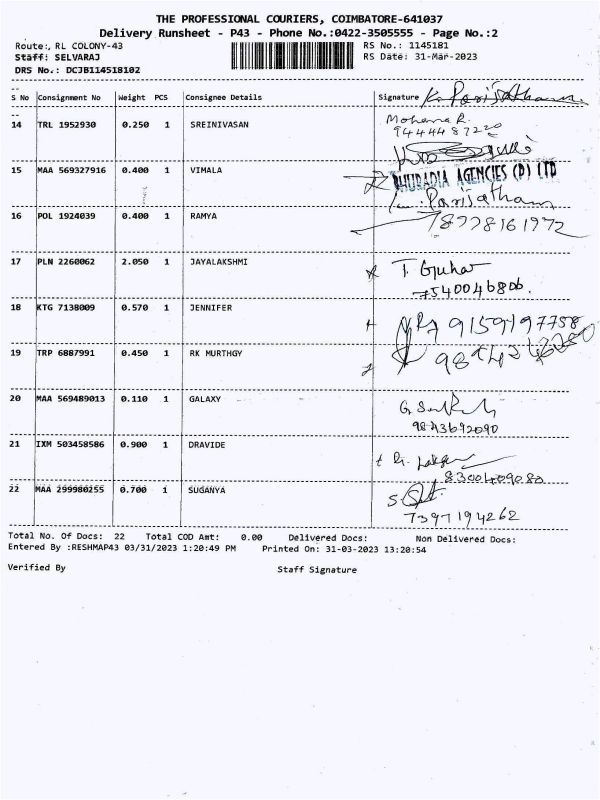 THE PROFESSIONAL COURIERS, COIMBATORE-641037
Delivery Runsheet - P43 - Phone No.:0422-3505555 - Page No.:2
Route:, RL COLONY-43 RS No.: 1145181
Staff: SELVARAJ RS Date: 31-Mar-2023
DRS No.: DCJB114518102
--
S No Consignment No Weight PCS Consignee Details Signature K. Parijatham
--
14 TRL 1952930 0.250 1 SREINIVASAN Mohana R.
9444487220
15 MAA 569327916 0.400 1 VIMALA
BHURADIA AGENCIES (P) LTD
K. Parijatham
16 POL 1924039 0.400 1 RAMYA 8778161972
17 PLN 2260062 2.050 1 JAYALAKSHMI T. Guhan
7540046806.
18 KTG 7138009 0.570 1 JENNIFER 9159197758
19 TRP 6887991 0.450 1 RK MURTHGY
20 MAA 569489013 0.110 1 GALAXY
9843692090
21 IXM 503458586 0.900 1 DRAVIDE
8300409080
22 MAA 299980255 0.700 1 SUGANYA
7397194262
Total No. Of Docs: 22 Total COD Amt: 0.00 Delivered Docs: Non Delivered Docs:
Entered By :RESHMAP43 03/31/2023 1:20:49 PM Printed On: 31-03-2023 13:20:54
Verified By Staff Signature